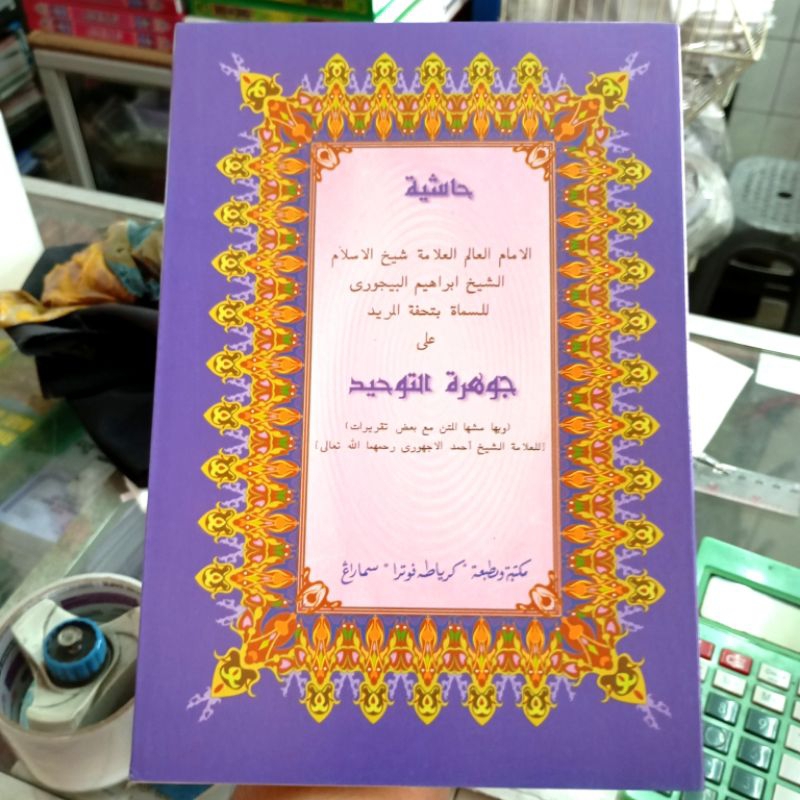 حاشية
الامام العالم العلامة شيخ الاسلام
الشيخ ابراهيم البيجورى
للسماة بتحفة المريد
على
جوهرة التوحيد
(وبها مشها المتن مع بعض تقريرات)
(للعلامة الشيخ أحمد الاجهورى رحمهما الله تعالى)
مكتبة ومطبعة "كرياطه فوترا" سماراڠ